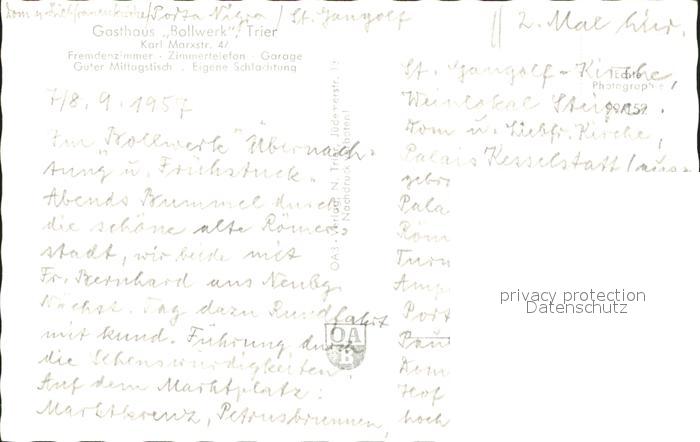 Dom u. Liebfrauenkirche/Porta Nigra / St. Gangolf
Gasthaus „Bollwerk", Trier
Karl Marxstr. 4/
Fremdenzimmer - Zimmertelefon - Garage
Guter Mittagstisch . Eigene Schlachtung
7/8. 9. 1957
Im „Bollwerk" Übernach-
tung u. Frühstück.
Abends Bummel durch
die schöne alte Römer-
stadt, wir beide mit
Fr. Bernhard aus Neubg.
Nächst. Tag dazu Rundfahrt
mit kund. Führung durch
die Sehenswürdigkeiten!
Auf dem Marktplatz:
Marktkreuz, Petrusbrunnen,
OAB - Verlag, N. Trier, Jüdemerstr. 13
Nachdruck verboten!
OA
B
2. Mal hier.
St. Gangolf-Kirche,
Echte
Photographie
Weinlokal
99/152
Dom u. Liebfr. Kirche,
Palais Kesselstatt (ausg
gebr
Pala
Röm
Turn
Amp
Port
Pau
Dom
Hof
hoch
privacy protection
Datenschutz